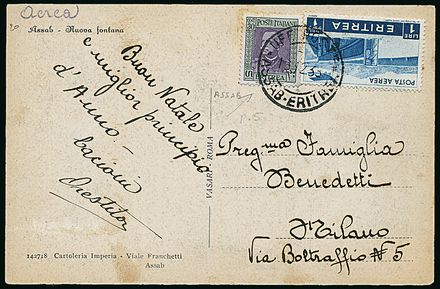 Aerea
Assab - Nuova fontana
Buon Natale
e miglior principio
d'Anno -
bacioni
Oreste
POSTE ITALIANE
1 LIRE 1
ERITREA
POSTA AEREA
ASSAB-ERITREA
ASSAB
P.5
VASARI - ROMA
Preg.ma Famiglia
Benedetti
Milano
Via Boltraffio N° 5
142718 Cartoleria Imperia - Viale Franchetti
Assab